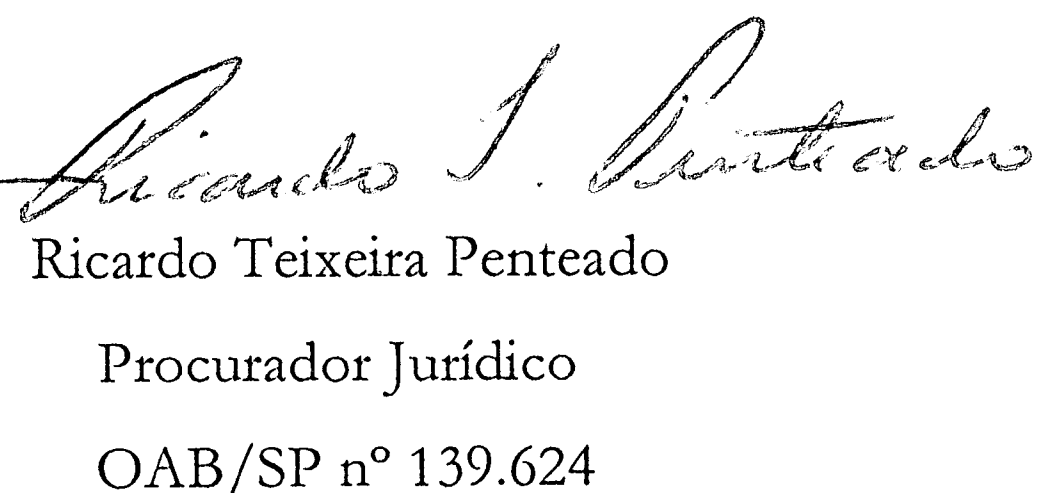 Ricardo T. Penteado
Ricardo Teixeira Penteado
Procurador Jurídico
OAB/SP nº 139.624